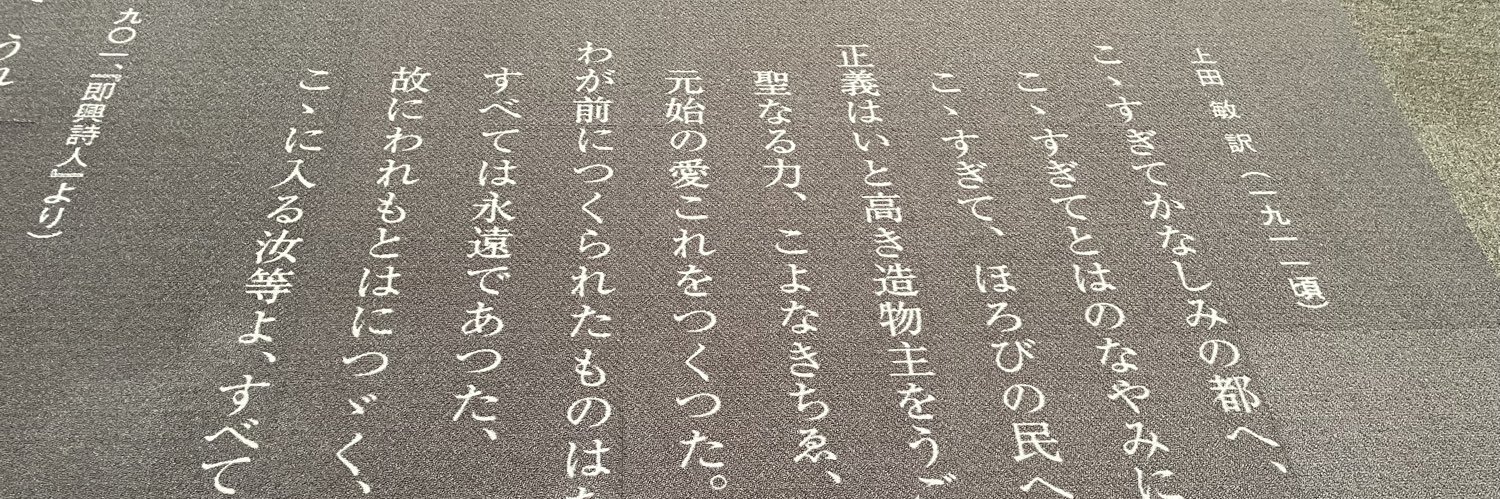 上田 敏 訳（一九一一頃）
こゝすぎてかなしみの都へ、
こゝすぎてとはのなやみに
こゝすぎて、ほろびの民へ
正義はいと高き造物主をうご
聖なる力、こよなきちゑ、
元始の愛これをつくつた。
わが前につくられたものは
すべては永遠であつた、
故にわれもとはにつゞく、
こゝに入る汝等よ、すべて
九〇一、『即興詩人』より）